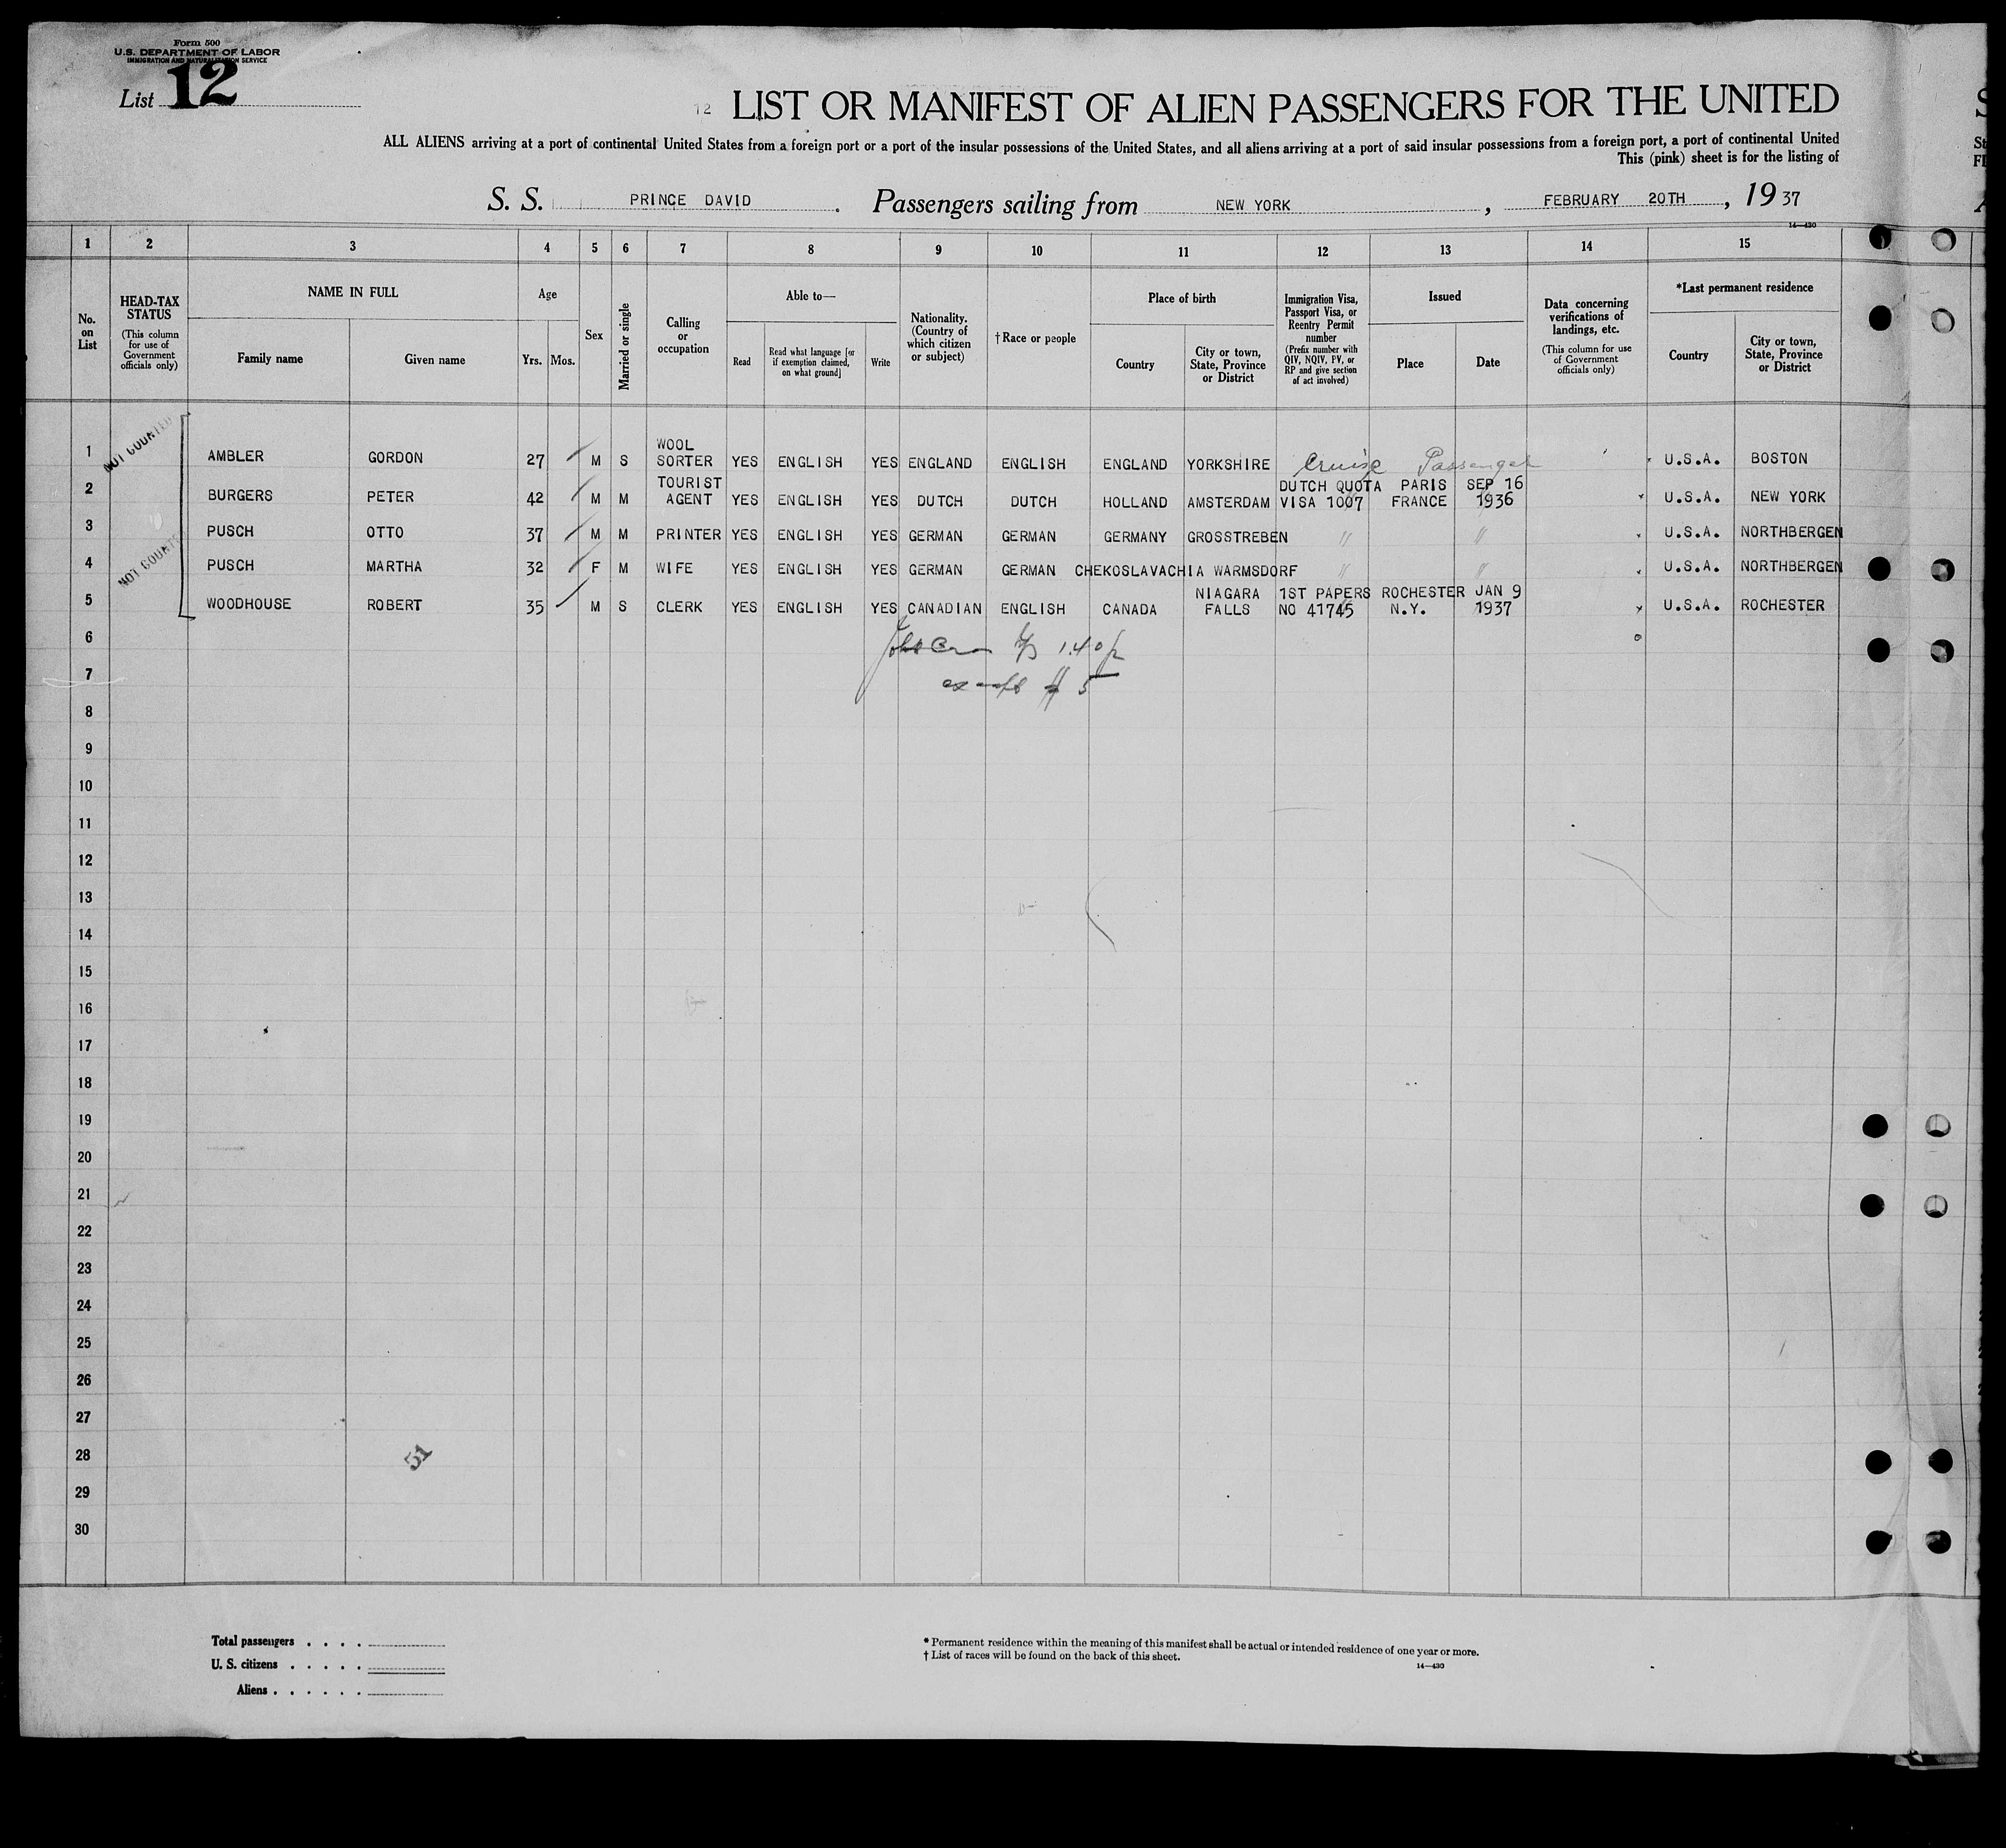 Form 500
U.S. DEPARTMENT OF LABOR
IMMIGRATION AND NATURALIZATION SERVICE
List 12
12 LIST OR MANIFEST OF ALIEN PASSENGERS FOR THE UNITED
ALL ALIENS arriving at a port of continental United States from a foreign port or a port of the insular possessions of the United States, and all aliens arriving at a port of said insular possessions from a foreign port, a port of continental United
This (pink) sheet is for the listing of
S. S. PRINCE DAVID. Passengers sailing from NEW YORK, FEBRUARY 20TH, 1937
14—430
1 2 3 4 5 6 7 8 9 10 11 12 13 14 15
No. on List
HEAD-TAX STATUS (This column for use of Government officials only)
NAME IN FULL
Family name Given name
Age
Yrs. Mos.
Sex
Married or single
Calling or occupation
Able to—
Read Read what language [or if exemption claimed, on what ground] Write
Nationality. (Country of which citizen or subject)
†Race or people
Place of birth
Country City or town, State, Province or District
Immigration Visa, Passport Visa, or Reentry Permit number (Prefix number with QIV, NQIV, PV, or RP and give section of act involved)
Issued
Place Date
Data concerning verifications of landings, etc. (This column for use of Government officials only)
*Last permanent residence
Country City or town, State, Province or District
NOT COUNTED
1 AMBLER GORDON 27 M S WOOL SORTER YES ENGLISH YES ENGLAND ENGLISH ENGLAND YORKSHIRE Cruise Passenger U.S.A. BOSTON
2 BURGERS PETER 42 M M TOURIST AGENT YES ENGLISH YES DUTCH DUTCH HOLLAND AMSTERDAM DUTCH QUOTA VISA 1007 PARIS FRANCE SEP 16 1936 U.S.A. NEW YORK
3 PUSCH OTTO 37 M M PRINTER YES ENGLISH YES GERMAN GERMAN GERMANY GROSSTREBEN " " U.S.A. NORTHBERGEN
NOT COUNTED
4 PUSCH MARTHA 32 F M WIFE YES ENGLISH YES GERMAN GERMAN CHEKOSLAVACHIA WARMSDORF " " U.S.A. NORTHBERGEN
5 WOODHOUSE ROBERT 35 M S CLERK YES ENGLISH YES CANADIAN ENGLISH CANADA NIAGARA FALLS 1ST PAPERS NO 41745 ROCHESTER N.Y. JAN 9 1937 U.S.A. ROCHESTER
6
7 # 5
8
9
10
11
12
13
14
15
16
17
18
19
20
21
22
23
24
25
26
27
28 51
29
30
Total passengers . . . .
U. S. citizens . . . . .
Aliens . . . . . .
* Permanent residence within the meaning of this manifest shall be actual or intended residence of one year or more.
† List of races will be found on the back of this sheet.
14—430